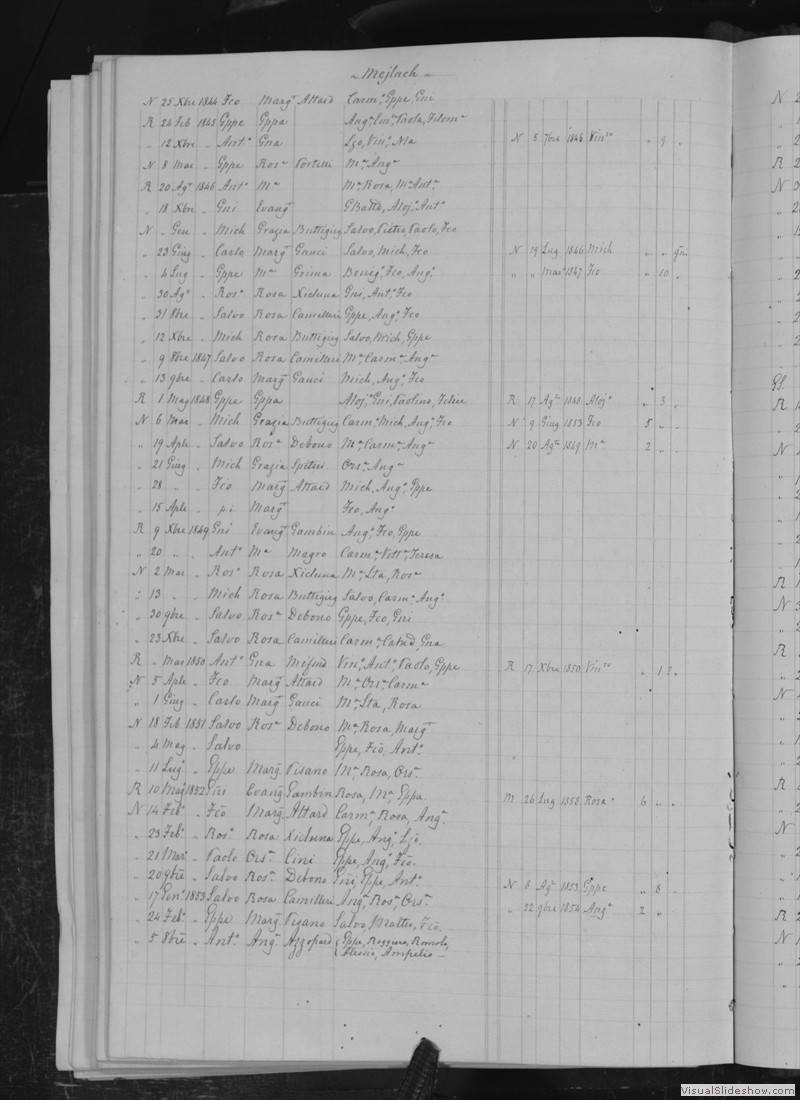 - Mejlach -
N 25 Xbre 1844 Fco Margᵗ Attard Carmᵒ, Gppe, Gni
R 24 Feb 1845 Gppe Gppa Angᵒ, Emᵒ, Paolo, Filomᵃ
" 12 Xbre " Antᵒ Gna Lzo, Vinᵒ, Nla N 5 7bre 1846 Vinᶻᵒ " 9 "
N 8 Mar " Gppe Rosᵃ Portelli Mᵃ, Angᵃ
R 20 Agᵗ 1846 Antᵒ Mᵃ Mᵃ, Rosa, Mᵃ Antᵃ
" 18 Xbre " Gni Evangᵗ GBatta, Alojᵒ, Antᵒ
N " Gen " Mich Grazia Buttigieg Salvo, Pietro, Paolo, Fco
" 23 Giug " Carlo Margᵗ Gauci Salvo, Mich, Fco N 19 Lug 1846 Mich " " gni
" 4 Lug " Gppe Mᵃ Grima Benigᵒ, Fco, Angᵒ " " Marᵒ 1847 Fco " 10 "
" 30 Agᵒ " Rosᵒ Rosa Xicluna Gni, Antᵒ, Fco
" 31 8bre " Salvo Rosa Camilleri Gppe, Angᵒ, Fco
" 12 Xbre " Mich Rosa Buttigieg Salvo, Mich, Gppe
" 9 8bre 1847 Salvo Rosa Camilleri Mᵃ, Carmᵃ, Angᵃ
" 13 9bre " Carlo Margᵗ Gauci Mich, Angᵒ, Fco
R 1 Mag 1848 Gppe Gppa Alojᵒ, Gni, Paolino, Felice R 17 Agᵗᵒ 1848 Alojᵒ " 3 "
N 6 Mar " Mich Grazia Buttigieg Carmᵒ, Mich, Angᵒ, Fco N 9 Giug 1853 Fco 5 " "
" 19 Aple " Salvo Rosᵃ Debono Mᵃ, Carmᵃ, Angᵃ N 20 Agᵗᵒ 1849 Mᵃ 2 " "
" 21 Giug " Mich Grazia Spiteri Orsᵃ, Angᵃ
" 28 " " Fco Margᵗ Attard Mich, Angᵒ, Gppe
" 15 Aple " Margᵗ Fco, Angᵒ
R 9 Xbre 1849 Gni Evangᵗ Gambin Angᵒ, Fco, Gppe
" 20 " " Antᵒ Mᵃ Magro Carmᵃ, Vittᵃ, Teresa
N 2 Mar " Rosᵒ Rosa Xicluna Mᵃ, Sta, Rosᵃ
" 13 " " Mich Rosa Buttigieg Salvo, Carmᵒ, Angᵒ
" 30 9bre " Salvo Rosᵃ Debono Gppe, Fco, Gni
" 23 Xbre " Salvo Rosa Camilleri Carmᵃ, Catad, Gna
R " Mar 1850 Antᵒ Gna Mifsud Vinᵒ, Antᵒ, Paolo, Gppe R 17 Xbre 1850 Vinᶻᵒ " 1 ? "
N 5 Aple " Fco Margᵗ Attard Mᵃ, Orsᵃ, Carmᵃ
" 1 Giug " Carlo Margᵗ Gauci Mᵃ, Sta, Rosa
N 18 Feb 1851 Salvo Rosᵃ Debono Mᵃ, Rosa, Margᵗ
" 4 Mag " Salvo Gppe, Fco, Antᵒ
" 11 Lugᵒ " Gppe Margᵗ Pisano Mᵃ, Rosa, Orsᵃ
R 10 Magᵒ 1852 Gni Evangᵗ Gambin Rosa, Mᵃ, Gppa M 26 Lug 1858 Rosa 6 " "
N 14 Febᵒ " Fco Margᵗ Attard Carmᵃ, Rosa, Angᵃ
" 23 Febᵒ " Rosᵒ Rosa Xicluna Gppe, Angᵒ, Lzo
" 21 Marᵒ " Paolo Orsᵃ Cini Gppe, Angᵒ, Fco
" 20 9bre " Salvo Rosᵃ Debono Gni, Gppe, Antᵒ N 8 Agᵗ 1853 Gppe " 8 "
" 17 Genᵒ 1853 Salvo Rosa Camilleri Angᵃ, Rosᵃ, Orsᵃ " 22 9bre 1854 Angᵃ 2 " "
" 24 Febᵒ " Gppe Margᵗ Pisano Salvo, Matteo, Fco
" 5 8bre " Antᵒ Angᵃ Azzopard Gppe, Ruggiero, Romolo,
Alessio, Ampelio
VisualSlideshow.com